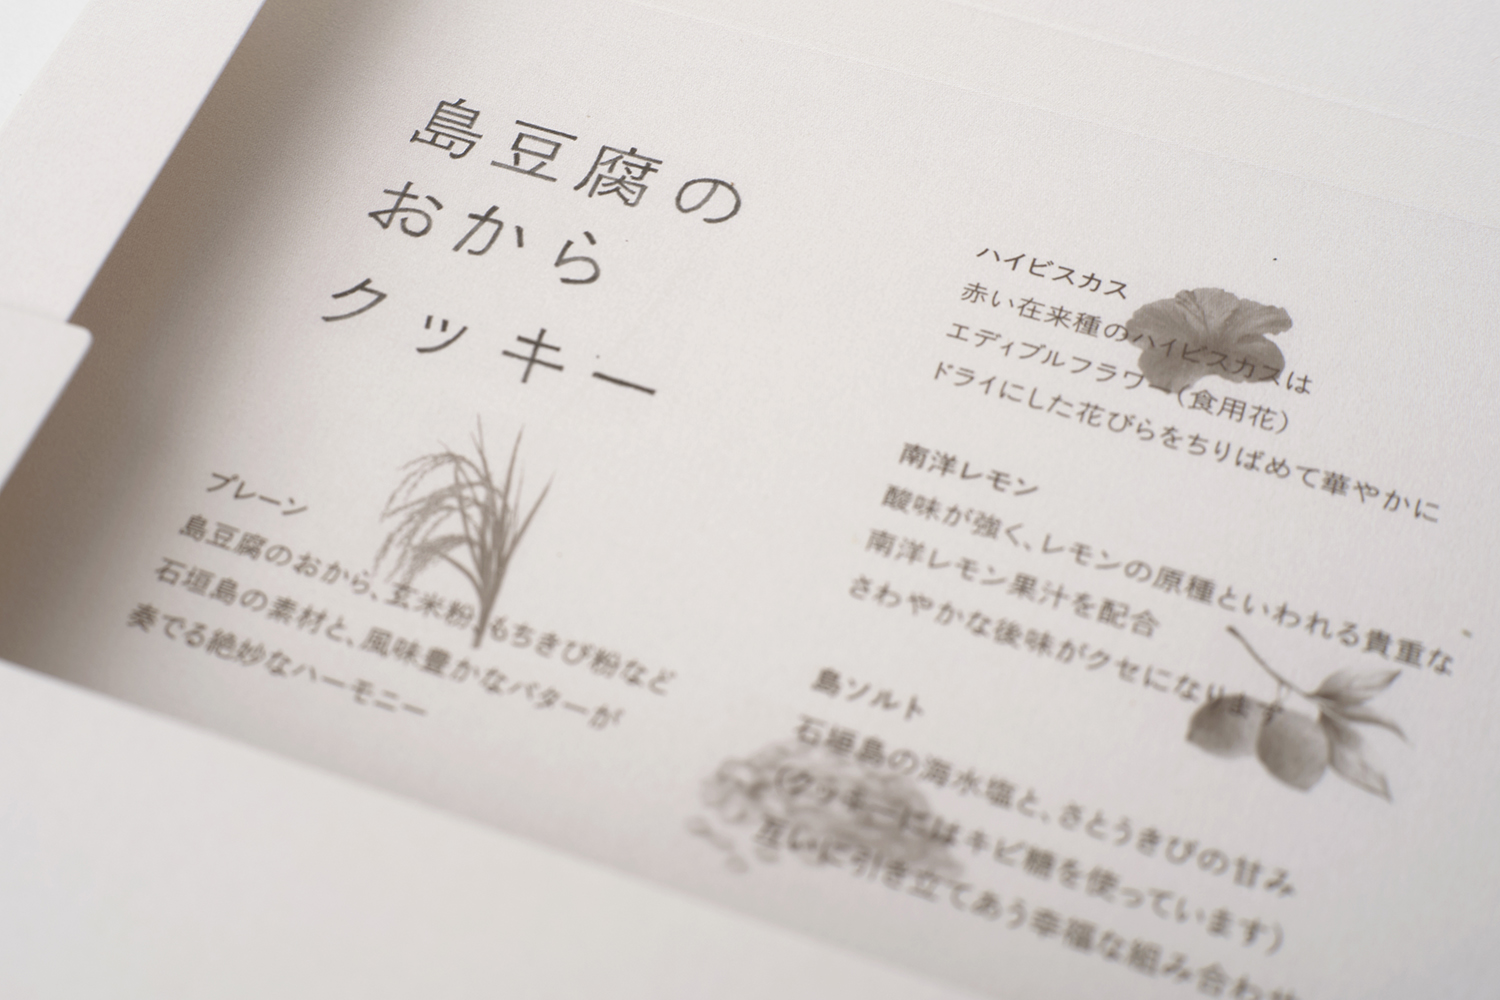 島豆腐の
おから
クッキー
プレーン
島豆腐のおから、玄米粉、もちきび粉など
石垣島の素材と、風味豊かなバターが
奏でる絶妙なハーモニー
ハイビスカス
赤い在来種のハイビスカスは
エディブルフラワー(食用花)
ドライにした花びらをちりばめて華やかに
南洋レモン
酸味が強く、レモンの原種といわれる貴重な
南洋レモン果汁を配合
さわやかな後味がクセになります
島ソルト
石垣島の海水塩と、さとうきびの甘み
(クッキーにはキビ糖を使っています)
互いに引き立てあう幸福な組み合わせ